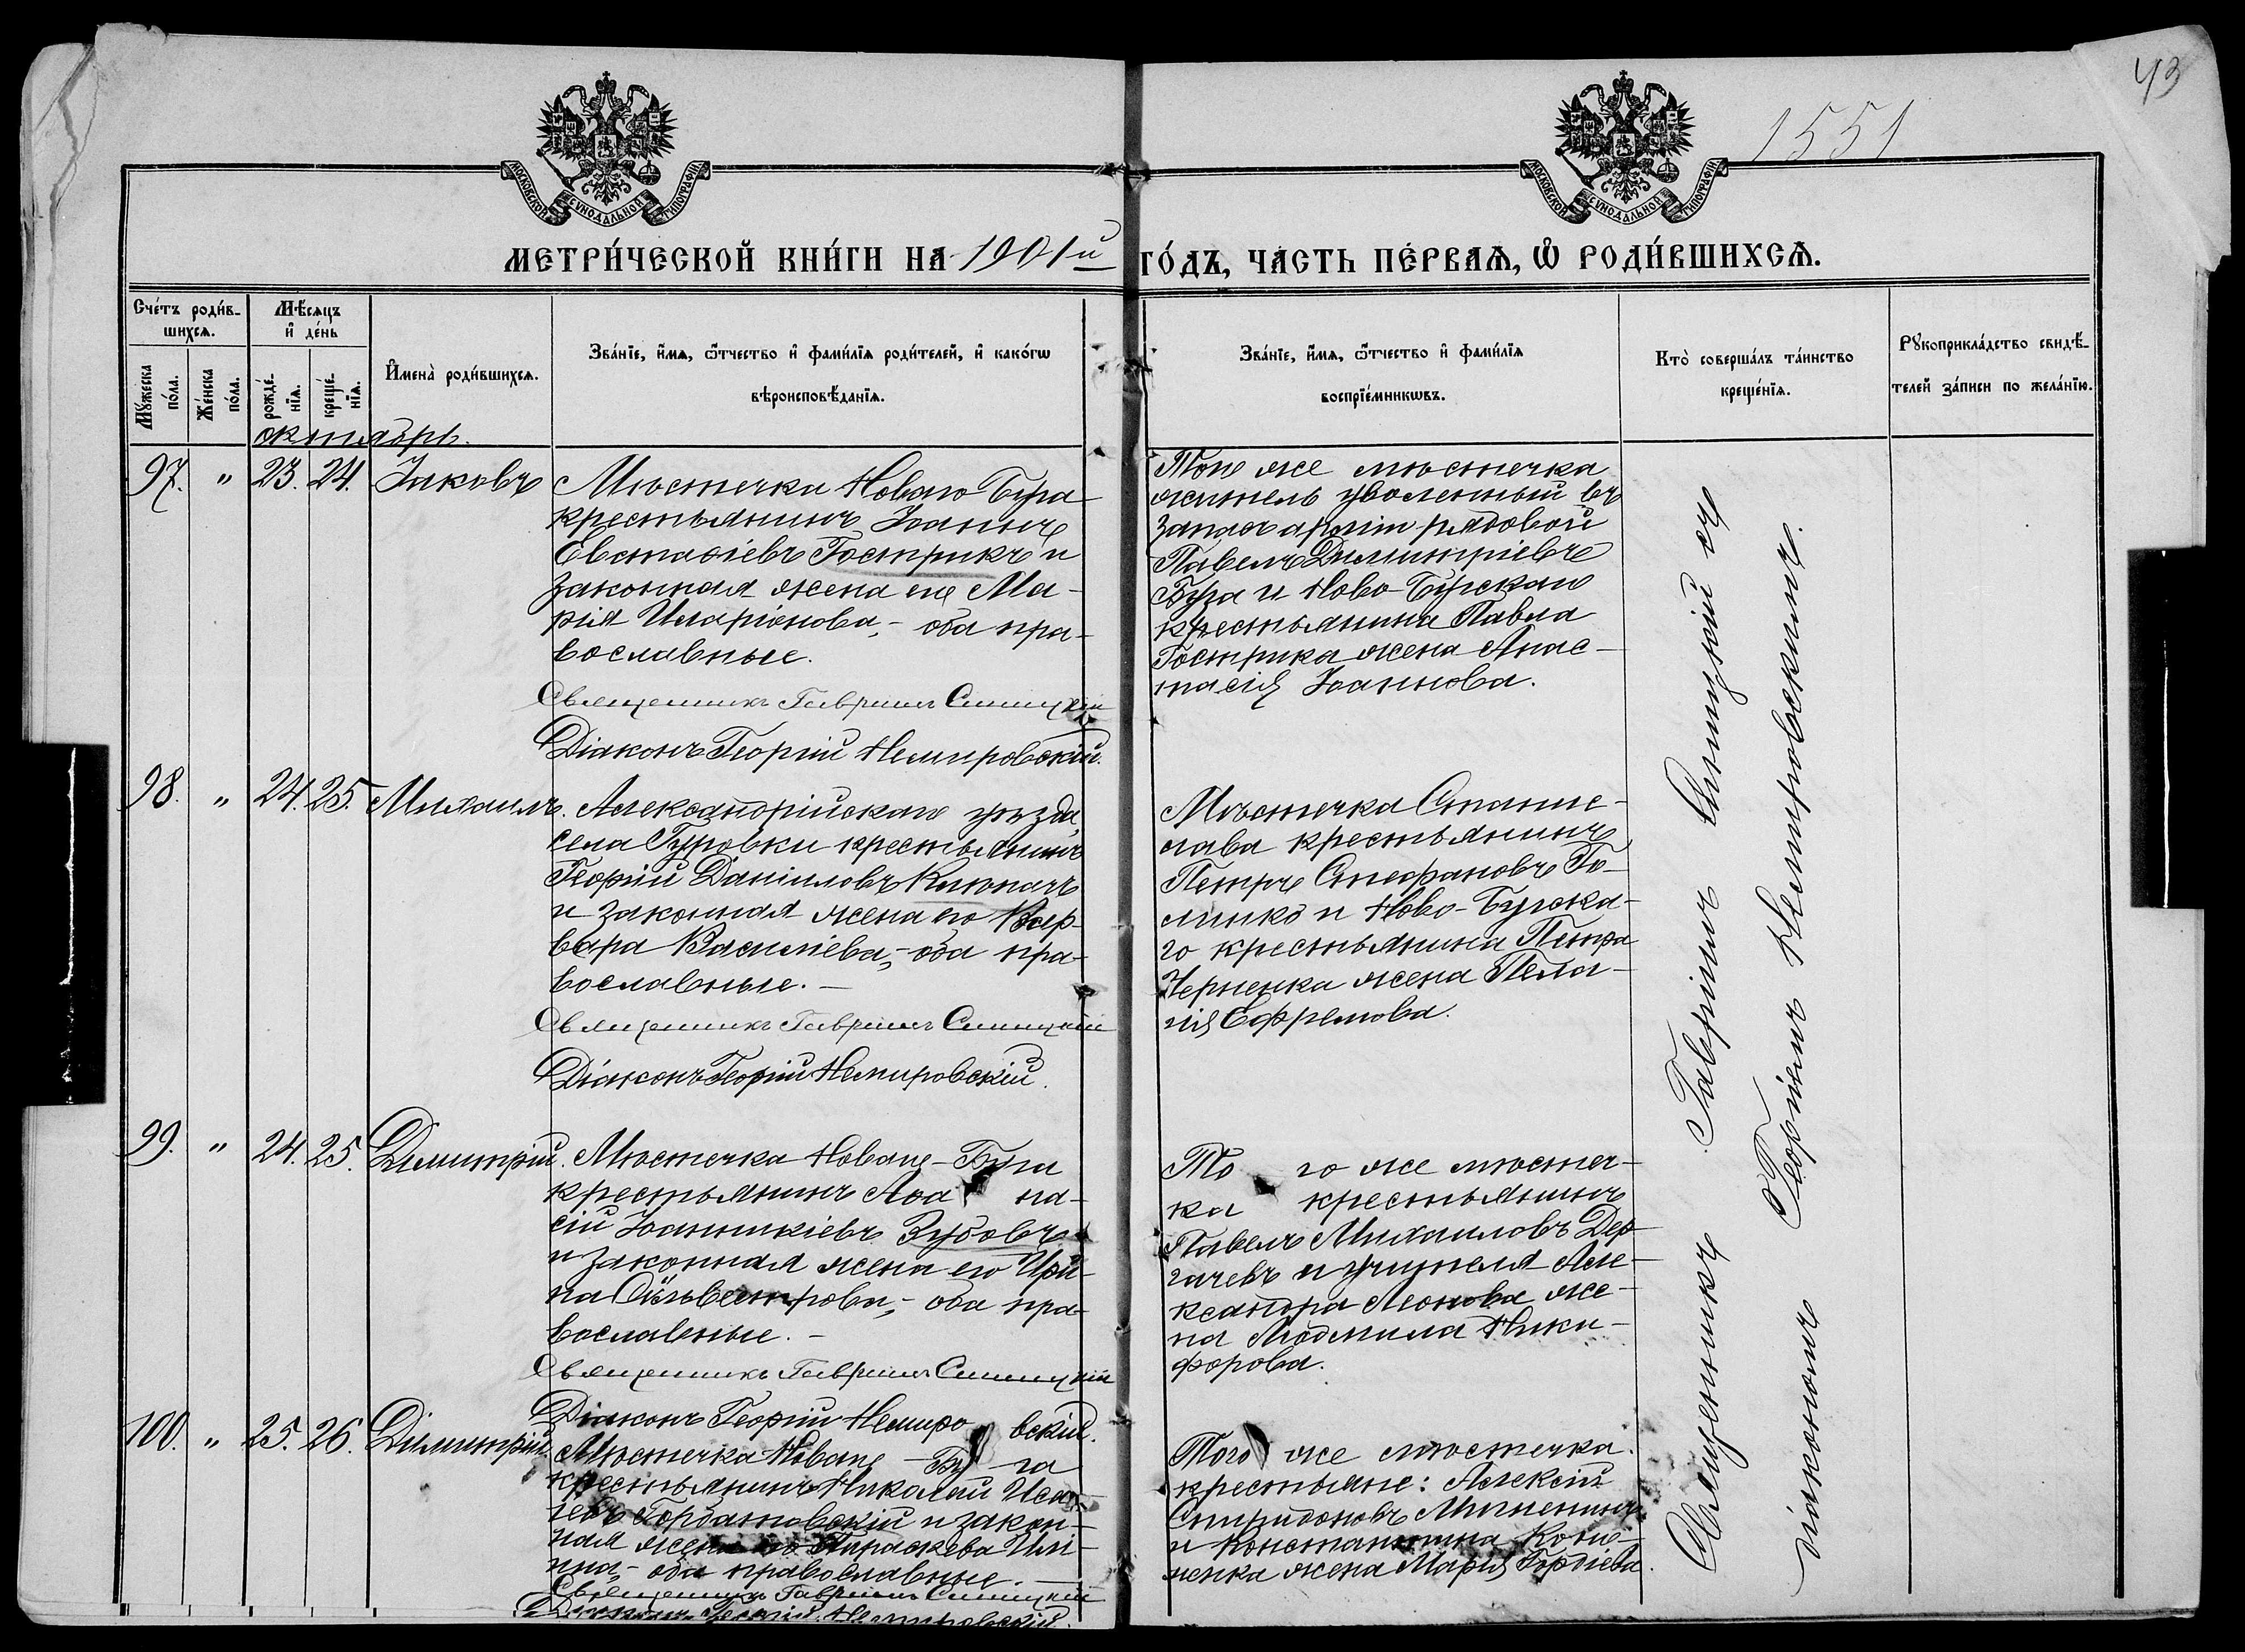 43
1551
МОСКОВСКОЙ СѴНОДАЛЬНОЙ ТИПОГРАФІИ
МОСКОВСКОЙ СѴНОДАЛЬНОЙ ТИПОГРАФІИ
МЕТРИ́ЧЕСКОЙ КНИ́ГИ НА 1901й ГО́ДЪ, ЧА́СТЬ ПЕ́РВАѦ, Ѡ҆ РОДИ́ВШИХСѦ.
Сче́тъ роди́в-
шихсѧ.
Мꙋ́жеска по́ла.
Же́нска по́ла.
Мѣ́сѧцъ и҆ де́нь
рожде́-нїѧ.
креще́-нїѧ.
И҆мена̀ роди́вшихсѧ.
Зва́нїе, и҆́мѧ, ѻ҆́тчество и҆ фами́лїѧ роди́телей, и҆ како́гѡ
вѣроисповѣ́данїѧ.
Зва́нїе, и҆́мѧ, ѻ҆́тчество и҆ фами́лїѧ
воспрїе́мникѡвъ.
Кто̀ соверша́лъ та́инство
креще́нїѧ.
Рꙋкоприкла́дство свидѣ́-
телей за́писи по жела́нїю.
октябрь.
97. " 23. 24. Іаковъ
Мѣстечка Новаго Буга
крестьянинъ Іоаннъ
Евстафіевъ Гострикъ и
законная жена его Ма-
рія Иларіонова,- оба пра-
вославные.
Священникъ Гавріилъ Синицкій
Діаконъ Георгій Немировскій.
Того же мѣстечка
житель уволенный въ
запасъ арміи рядовой
Павелъ Димитріевъ
Буза и Ново-Бугскаго
крестьянина Павла
Гострика жена Анас-
тасія Іоаннова.
98. " 24. 25. Михаилъ.
Александрійскаго уѣзда,
села Гуровки крестьянинъ
Георгій Даніиловъ Клюпачъ
и законная жена его Вар-
вара Василіева,- оба пра-
вославные.-
Священникъ Гавріилъ Синицкій
Діаконъ Георгій Немировскій.
Мѣстечка Станис-
лава крестьянинъ
Петръ Стефановъ Го-
линко и Ново-Бугска-
го крестьянина Петра
Черненка жена Пела-
гія Ефремова.
99. " 24. 25. Димитрій.
Мѣстечка Новаго-Буга
крестьянинъ Аѳа на-
сій Іоанникіевъ Зубовъ
и законная жена его Ири-
на Сильвестрова,- оба пра-
вославные.-
Священникъ Гавріилъ Синицкій
Діаконъ Георгій Немиро вскій.
То го же мѣстеч-
ка крестьянинъ
Павелъ Михаиловъ Дер-
гачевъ и учителя Але-
ксандра Леонова же-
на Людмила Ники-
форова.
100. " 25. 26. Димитрій.
Мѣстечка Новаго - Бу га
крестьянинъ Николай Исаа-
кіевъ Горбатовскій и закон-
ная жена его Параскева
оба православные.-
Священникъ Гавріилъ Синицкій
Діаконъ Георгій Немировскій.
Того же мѣстечка
крестьяне: Алексій
Спиридоновъ
и Константина
жена Марія
Священникъ Гавріилъ Синицкій съ
діакономъ Георгіемъ Немировскимъ.